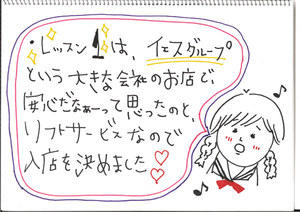 ・レッスン1は、イエスグループ
という大きな会社のお店で
安心だなぁーって思ったのと、
ソフトサービスなので
入店を決めました♡♡